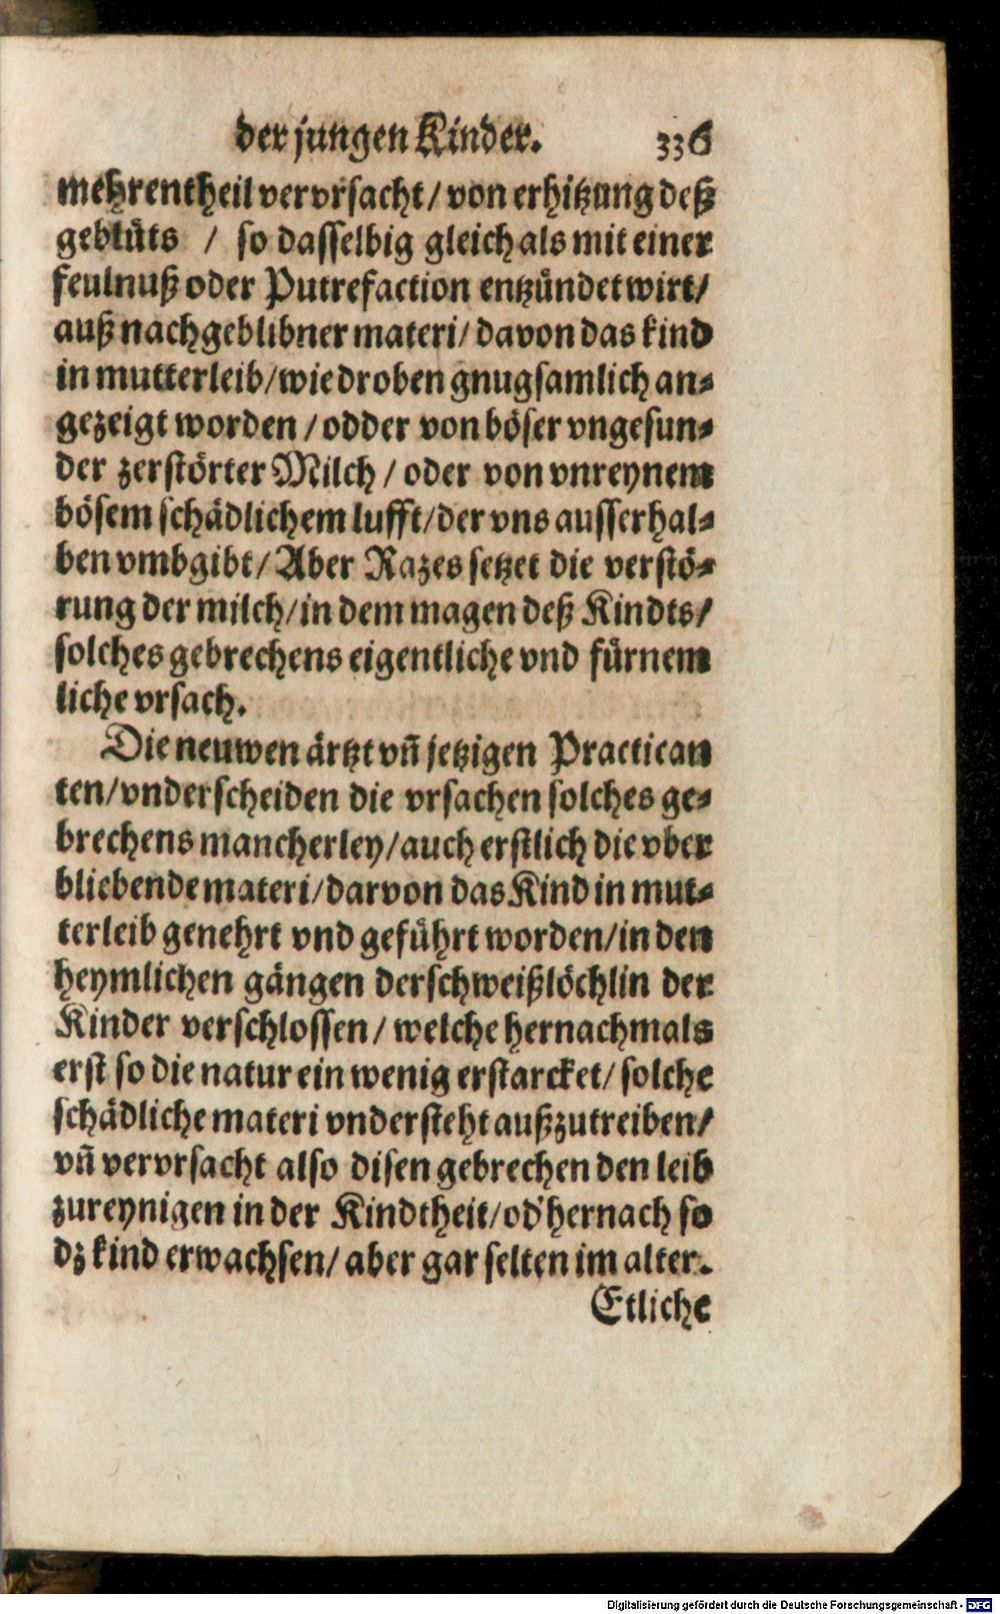 der jungen Kinder. 336
mehrentheil vervrsacht / von erhitzung deß
geblüts / so dasselbig gleich als mit einer
feulnuß oder Putrefaction entzündet wirt /
auß nachgeblibner materi / davon das kind
in mutterleib / wie droben gnugsamlich an-
gezeigt worden / odder von böser vngesun-
der zerstörter Milch / oder von vnreynem
bösem schädlichem lufft / der vns ausserhal-
ben vmbgibt / Aber Razes setzet die verstö-
rung der milch / in dem magen deß Kindts /
solches gebrechens eigentliche vnd fürnem
liche vrsach.
Die neuwen ärtzt vñ jetzigen Practican
ten / vnderscheiden die vrsachen solches ge-
brechens mancherley / auch erstlich die vber
bliebende materi / darvon das Kind in mut-
terleib genehrt vnd geführt worden / in den
heymlichen gängen der schweißlöchlin der
Kinder verschlossen / welche hernachmals
erst so die natur ein wenig erstarcket / solche
schädliche materi vndersteht außzutreiben /
vñ vervrsacht also disen gebrechen den leib
zureynigen in der Kindtheit / od' hernach so
dz kind erwachsen / aber gar selten im alter.
Etliche
Digitalisierung gefördert durch die Deutsche Forschungsgemeinschaft - DFG